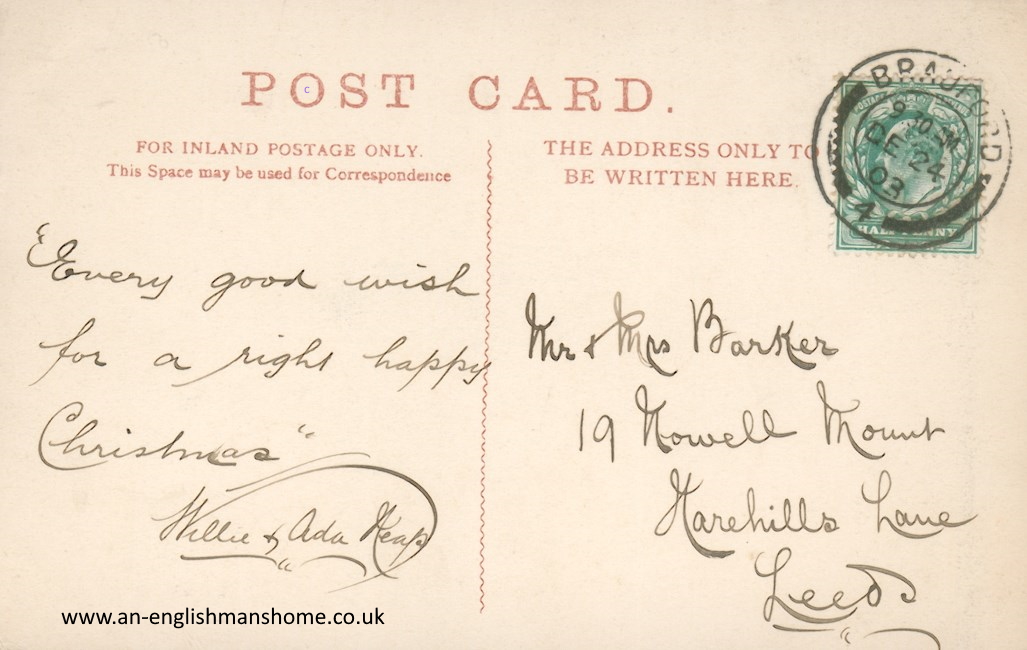 POST CARD.
FOR INLAND POSTAGE ONLY.
This Space may be used for Correspondence
THE ADDRESS ONLY TO
BE WRITTEN HERE.
BRADFORD
DE 24
03
4
HALFPENNY
"Every good wish
for a right happy
Christmas"
Willie & Ada Heap
Mr & Mrs Barker
19 Nowell Mount
Harehills Lane
Leeds
www.an-englishmanshome.co.uk